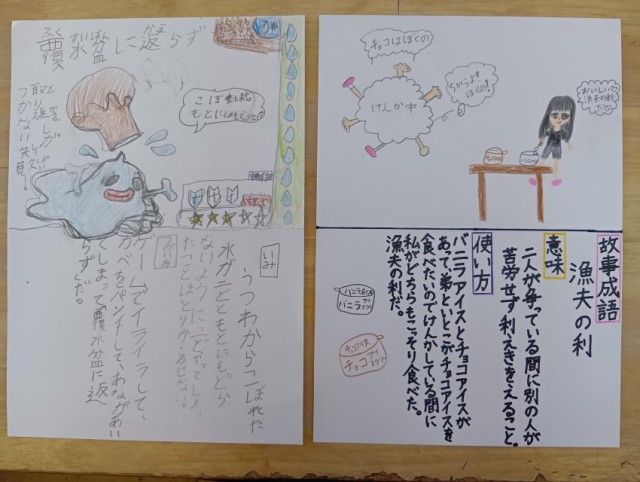 覆水盆に返らず
ふく すい ぼん かえ
取り返しが
つかない失敗!
こぼ
もとには
いみ
うつわからこぼれた
水が二どともとにもどら
ないように、一どやってしまっ
たことはとりかえせない。
ゲームでイライラして、
カベをパンチして、あながあい
てしまって覆水盆に返
らずだ。
チョコはぼくの
ちがうよ!
ぼくの!
けんか中
おいしい♡
漁夫の利
だわ
故事成語
漁夫の利
意味
二人が争っている間に別の人が
苦労せず利えきをえること。
使い方
バニラアイスとチョコアイスが
あって、弟といとこがチョコアイスを
食べたいのでけんかしている間に
私がどちらもこっそり食べた。
漁夫の利だ。
バニラアイス
チョコアイス